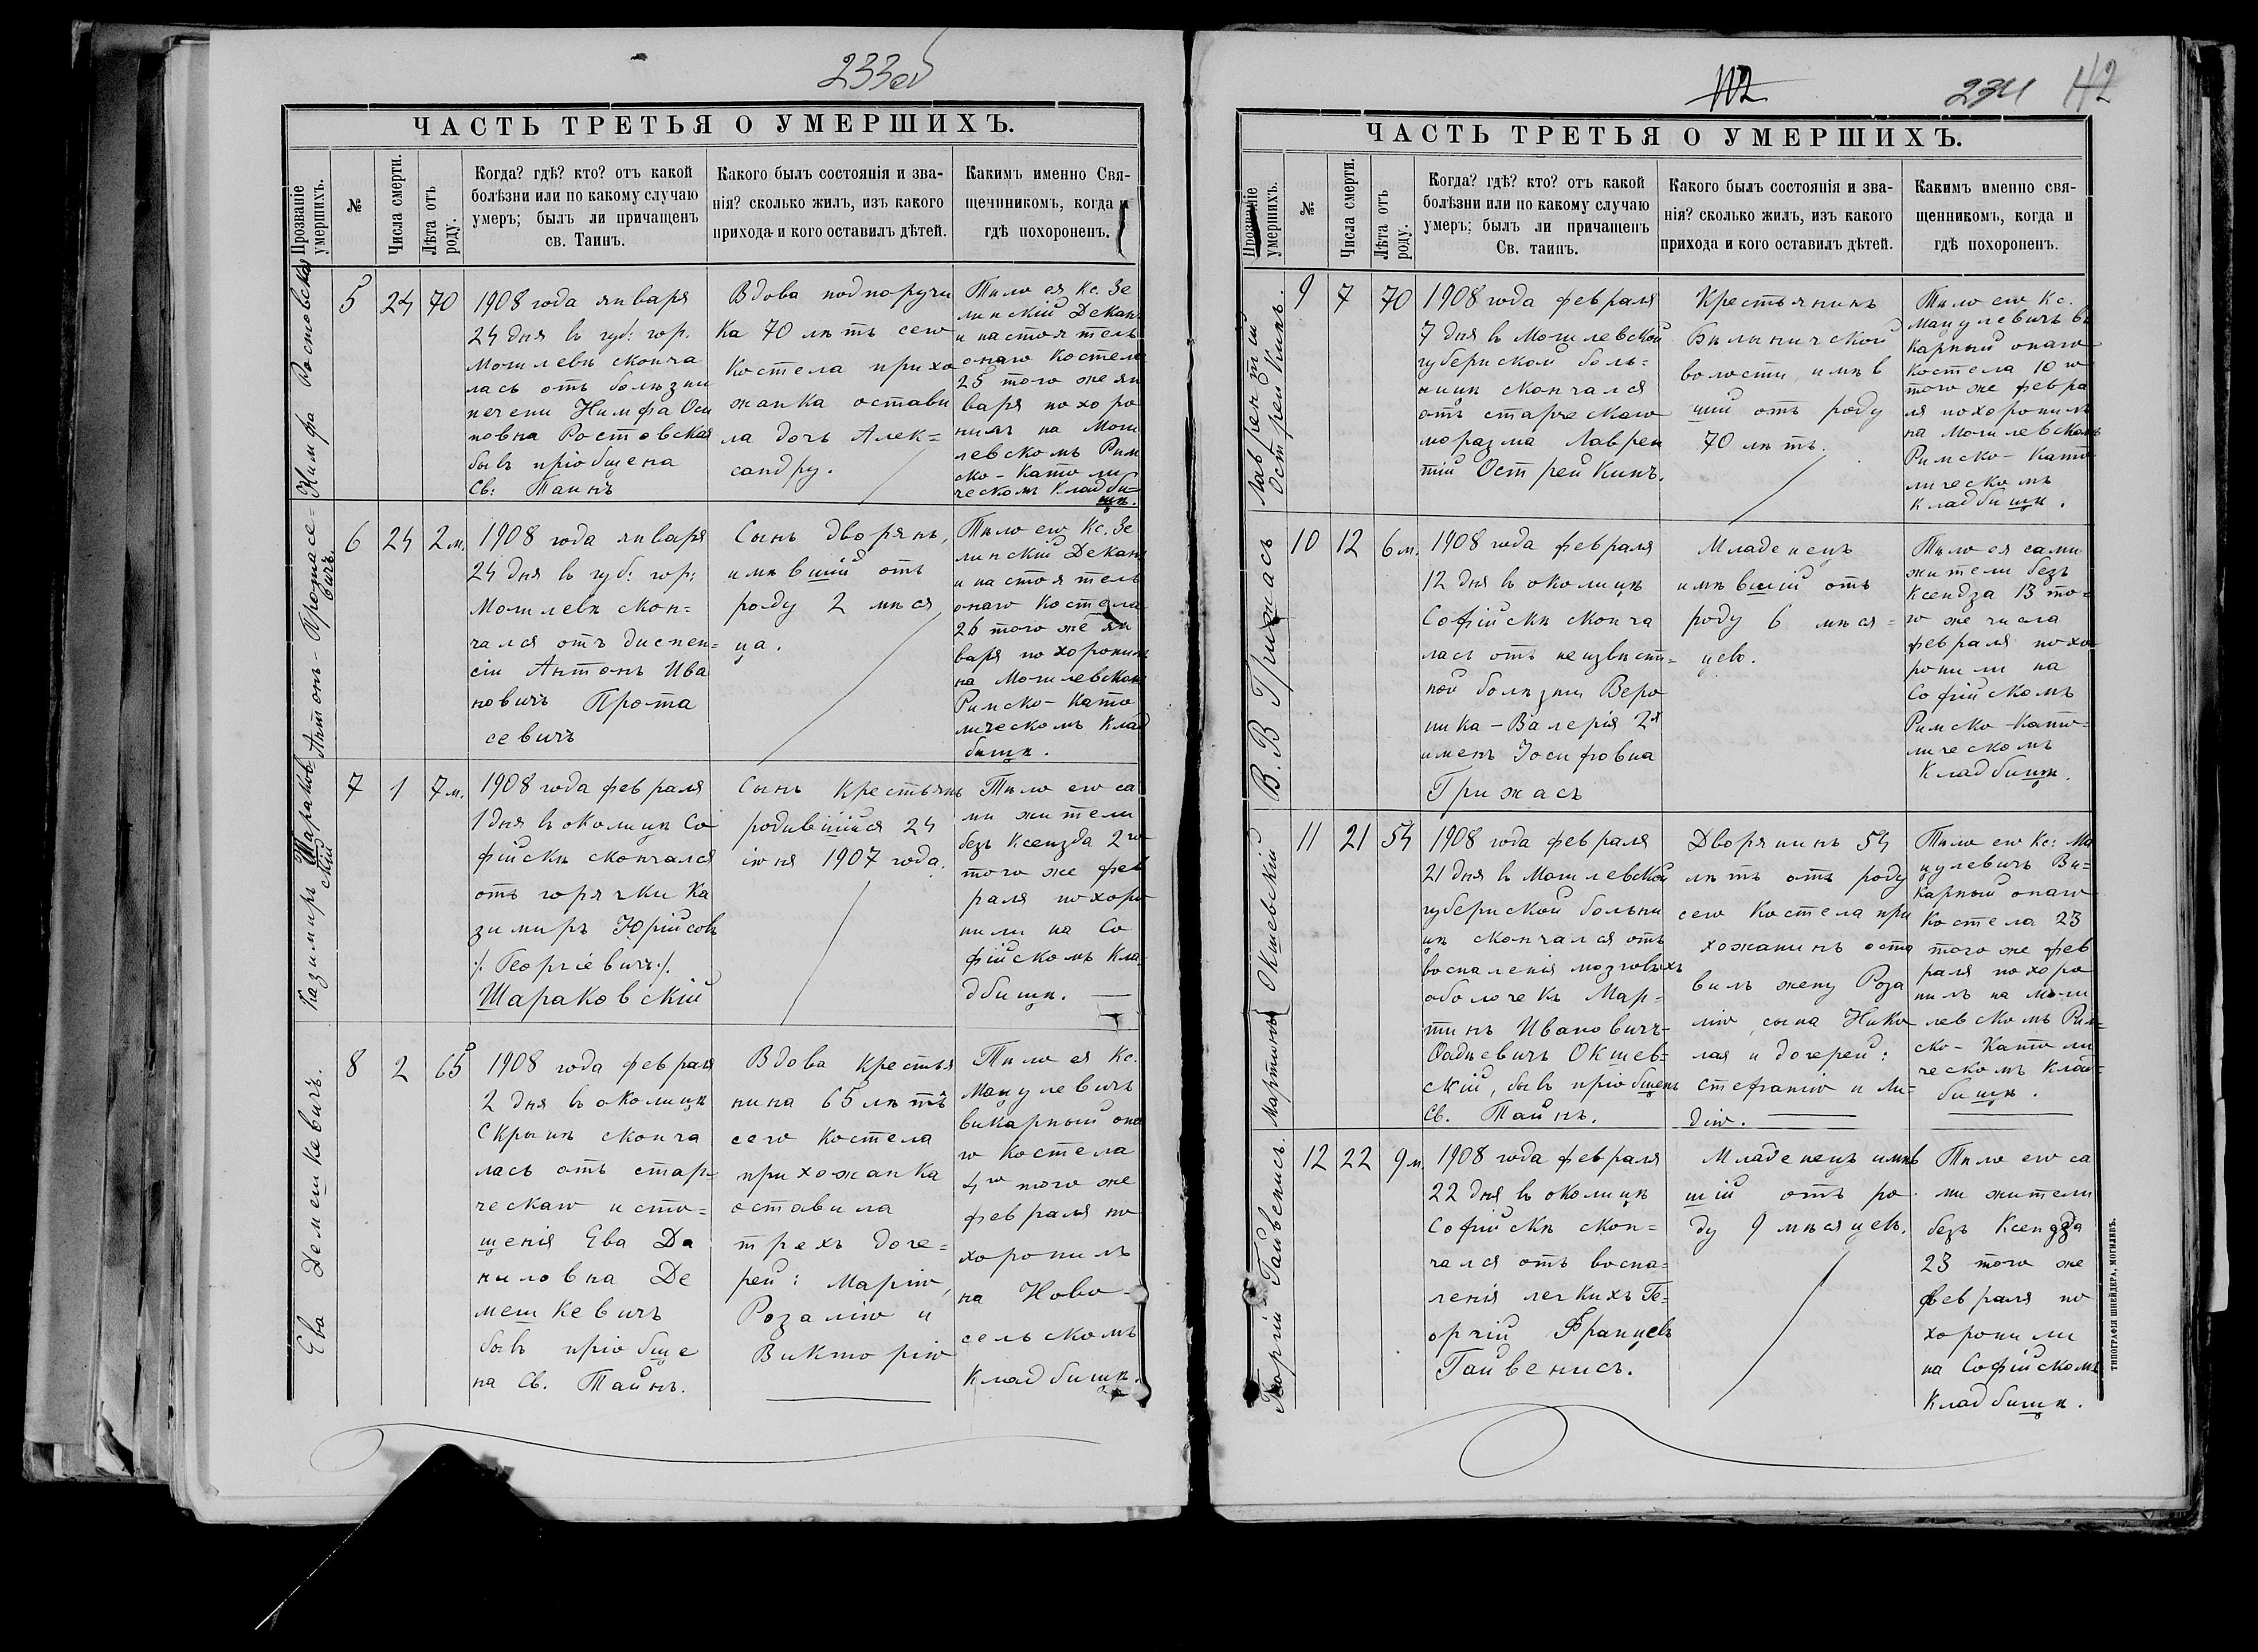 233об
ЧАСТЬ ТРЕТЬЯ О УМЕРШИХЪ.
Прозваніе умершихъ.
№
Числа смерти.
Лѣта отъ роду.
Когда? гдѣ? кто? отъ какой
болѣзни или по какому случаю
умеръ; былъ ли причащенъ
св. Таинъ.
Какого былъ состоянія и зва-
нія? сколько жилъ, изъ какого
прихода и кого оставилъ дѣтей.
Каким именно Свя-
щенникомъ, когда и
гдѣ похороненъ.
Нимфа Ростовская
5
24
70
1908 года января
24 дня въ губ: гор.
Могилевѣ сконча
лась отъ болѣзни
печени Нимфа Оси
повна Ростовская
бывъ пріобщена
Св: Таинъ
Вдова подпоручи
ка 70 лѣтъ сего
Костела прихо
жанка остави
ла дочь Алек=
сандру.
Тѣло ея Кс. Зе
линскій Деканъ
и настоятель
онаго Костела
25 того же ян
варя похоро
нилъ на Моги
левскомъ Рим
ско-Католи
ческомъ Кладби-
щѣ.
Антонъ Протасе=
вичъ.
6
24
2 м.
1908 года января
24 дня въ губ: гор:
Могилевѣ скон=
чался отъ диспеп=
сіи Антонъ Ива
новичъ Прота
севичъ
Сынъ дворянъ,
имѣвшій отъ
роду 2 мѣся,
ца.
Тѣло его Кс. Зе
линскій Деканъ
и настоятель
онаго Костела
26 того же ян
варя похоронилъ
на Могилевском
Римско-Като
лическомъ Клад
бищѣ.
Казимиръ Шараков
скій
7
1
7 м.
1908 года февраля
1 дня въ околицѣ Со
фійскѣ скончался
отъ горячки Ка
зимиръ Юрійсовъ
/. Георгіевичъ ./.
Шараковскій
Сынъ Крестьянъ
родившійся 24
іюня 1907 года.
Тѣло его са
ми жители
безъ Ксендза 2го
того же фев
раля похоро
нили на Со
фійскомъ Кла-
дбищѣ.
Ева Демешкевичъ.
8
2
65
1908 года февраля
2 дня въ околицѣ
Скрыцѣ сконча
лась отъ стар-
ческаго исто=
щенія Ева Да
ниловна Де
мешкевичъ
бывъ пріобще
на Св. Тайнъ.
Вдова крестья
нина 65 лѣтъ
сего Костела
прихожанка
оставила
трехъ доче=
рей: Марію,
Розалію и
Викторію
Тѣло ея Кс.
Мацулевичъ
викарный она
го Костела
4го того же
февраля по
хоронилъ
на Ново-
сельскомъ
Кладбищѣ.
112
234
42
ЧАСТЬ ТРЕТЬЯ О УМЕРШИХЪ.
Прозваніе умершихъ.
№
Числа смерти.
Лѣта отъ роду.
Когда? гдѣ? кто? отъ какой
болѣзни или по какому случаю
умеръ; былъ ли причащенъ
Св. таинъ.
Какого былъ состоянія и зва-
нія? сколько жилъ, изъ какого
прихода и кого оставилъ дѣтей.
Каким именно свя-
щенникомъ, когда и
гдѣ похороненъ.
Лаврентій
Острейкинъ.
9
7
70
1908 года февраля
7 дня въ Могилевской
губернской боль=
ницѣ скончался
отъ старческаго
моразма Лаврен
тій Острейкинъ.
Крестьянинъ
Бѣлыничской
волости, имѣв
шій отъ роду
70 лѣтъ.
Тѣло его Кс.
Мацулевичъ ви
карный онаго
Костела 10го
того же февра
ля похоронилъ
на Могилевскомъ
Римско-Като
лическомъ
Кладбищѣ.
В. В Грижасъ
10
12
6 м.
1908 года февраля
12 дня въ околицѣ
Софійскѣ сконча
лась отъ неизвѣст=
ной болѣзни Веро
ника-Валерія 2х
именъ Іосифовна
Грижасъ
Младенецъ
имѣвшій отъ
роду 6 мѣся=
цевъ.
Тѣло ея сами
жители безъ
Ксендза 13 то=
го же числа
февраля похо
ронили на
Софійскомъ
Римско-Като=
лическомъ
Кладбищѣ.
Мартинъ Окшевскій
11
21
54
1908 года февраля
21 дня въ Могилевской
губернской больни
цѣ скончался отъ
воспаленія мозговыхъ
оболочекъ Мар=
тинъ Ивановичъ-
Фадѣевичъ Окшев=
скій, бывъ пріобщенъ
Св. Тайнъ.
Дворянинъ 54
лѣтъ отъ роду
сего Костела при
хожанинъ оста
вилъ жену Роза
лію, сына Нико
лая и дочерей:
Стефанію и Ли=
дію.
Тѣло его Кс: Ма
цулевичъ Ви=
карный онаго
Костела 23
того же фев
раля похоро
нилъ на Моги
левскомъ Рим=
ско-Католи
ческомъ Клад=
бищѣ.
Георгій Гайвенисъ.
12
22
9 м.
1908 года февраля
22 дня въ околицѣ
Софійскѣ скон=
чался отъ воспа=
ленія легкихъ Ге=
оргій Францевъ
Гайвенисъ.
Младенецъ имѣв
шій отъ ро
ду 9 мѣсяцевъ.
Тѣло его са
ми жители
безъ Ксендза
23 того же
февраля по
хоронили
на Софійскомъ
Кладбищѣ.
ТИПОГРАФІЯ ШНЕЙДЕРА, МОГИЛЕВЪ.